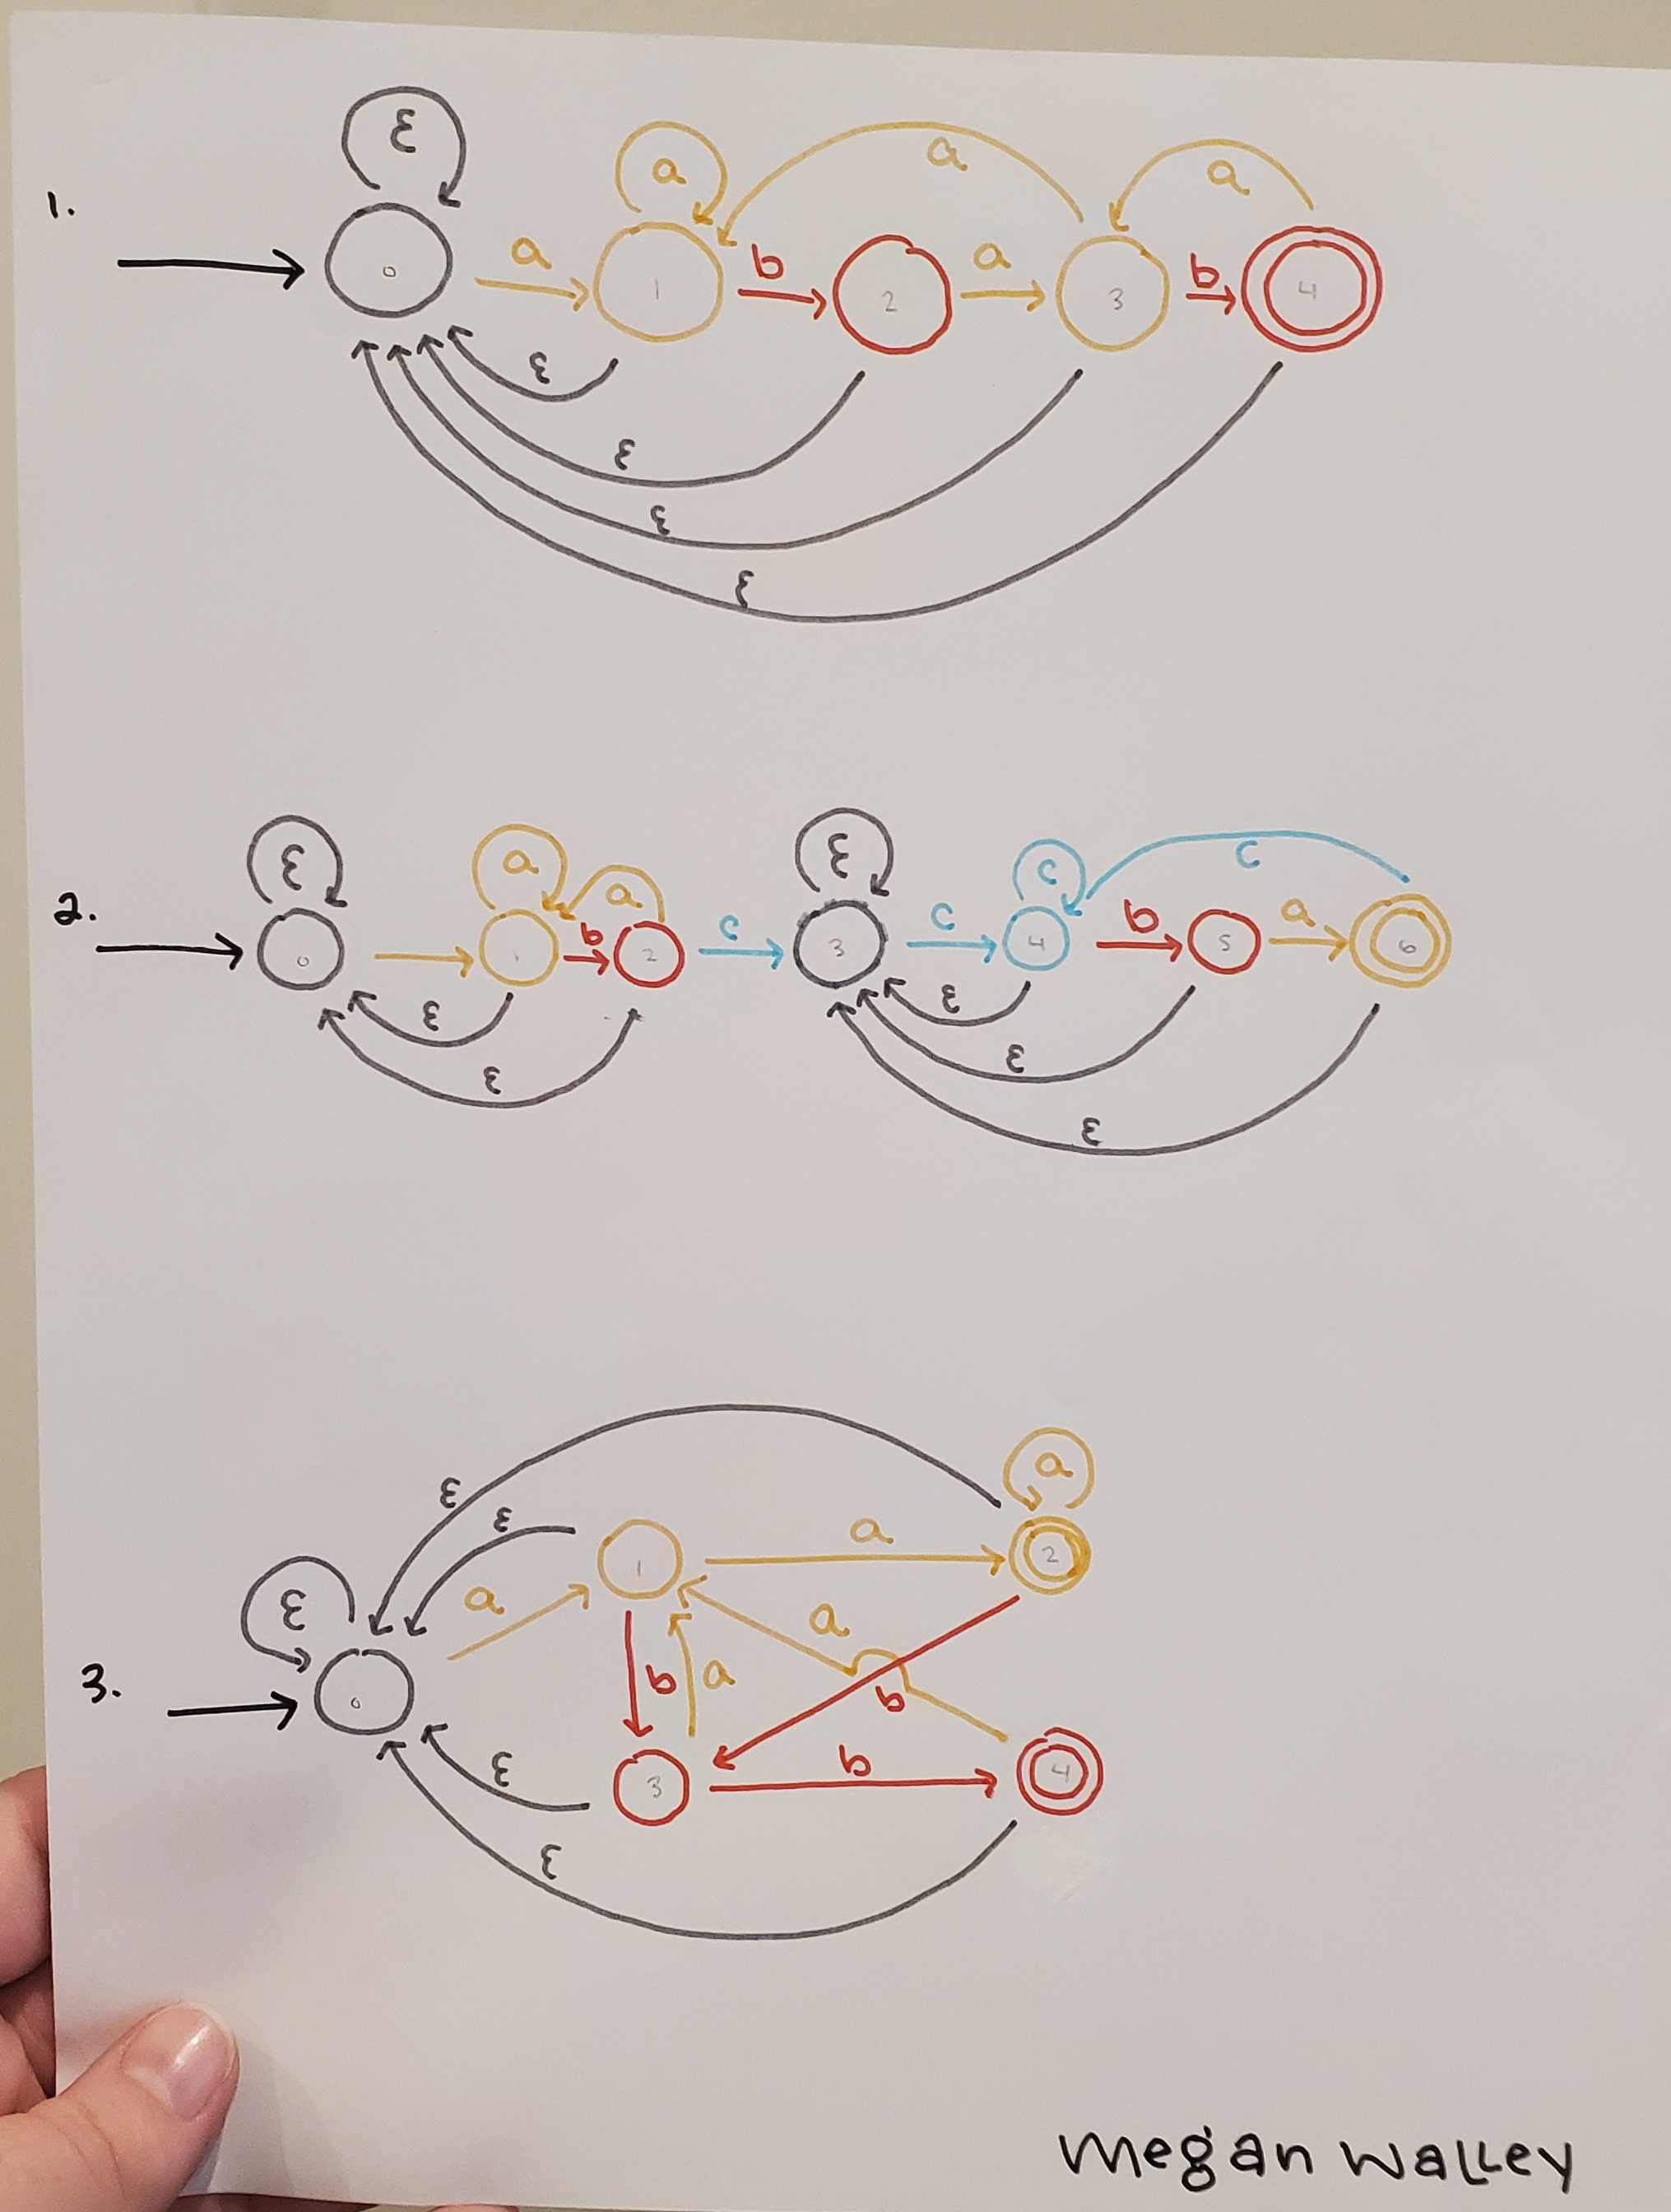 ε a a a
1.
0 a 1 b 2 a 3 b 4
ε
ε
ε
ε
ε a a ε c c
2.
0 1 b 2 c 3 c 4 b 5 a 6
ε ε
ε ε
ε
a
ε
ε 1 a 2
ε a a
3. 0 b a b
ε 3 b 4
ε
megan walley